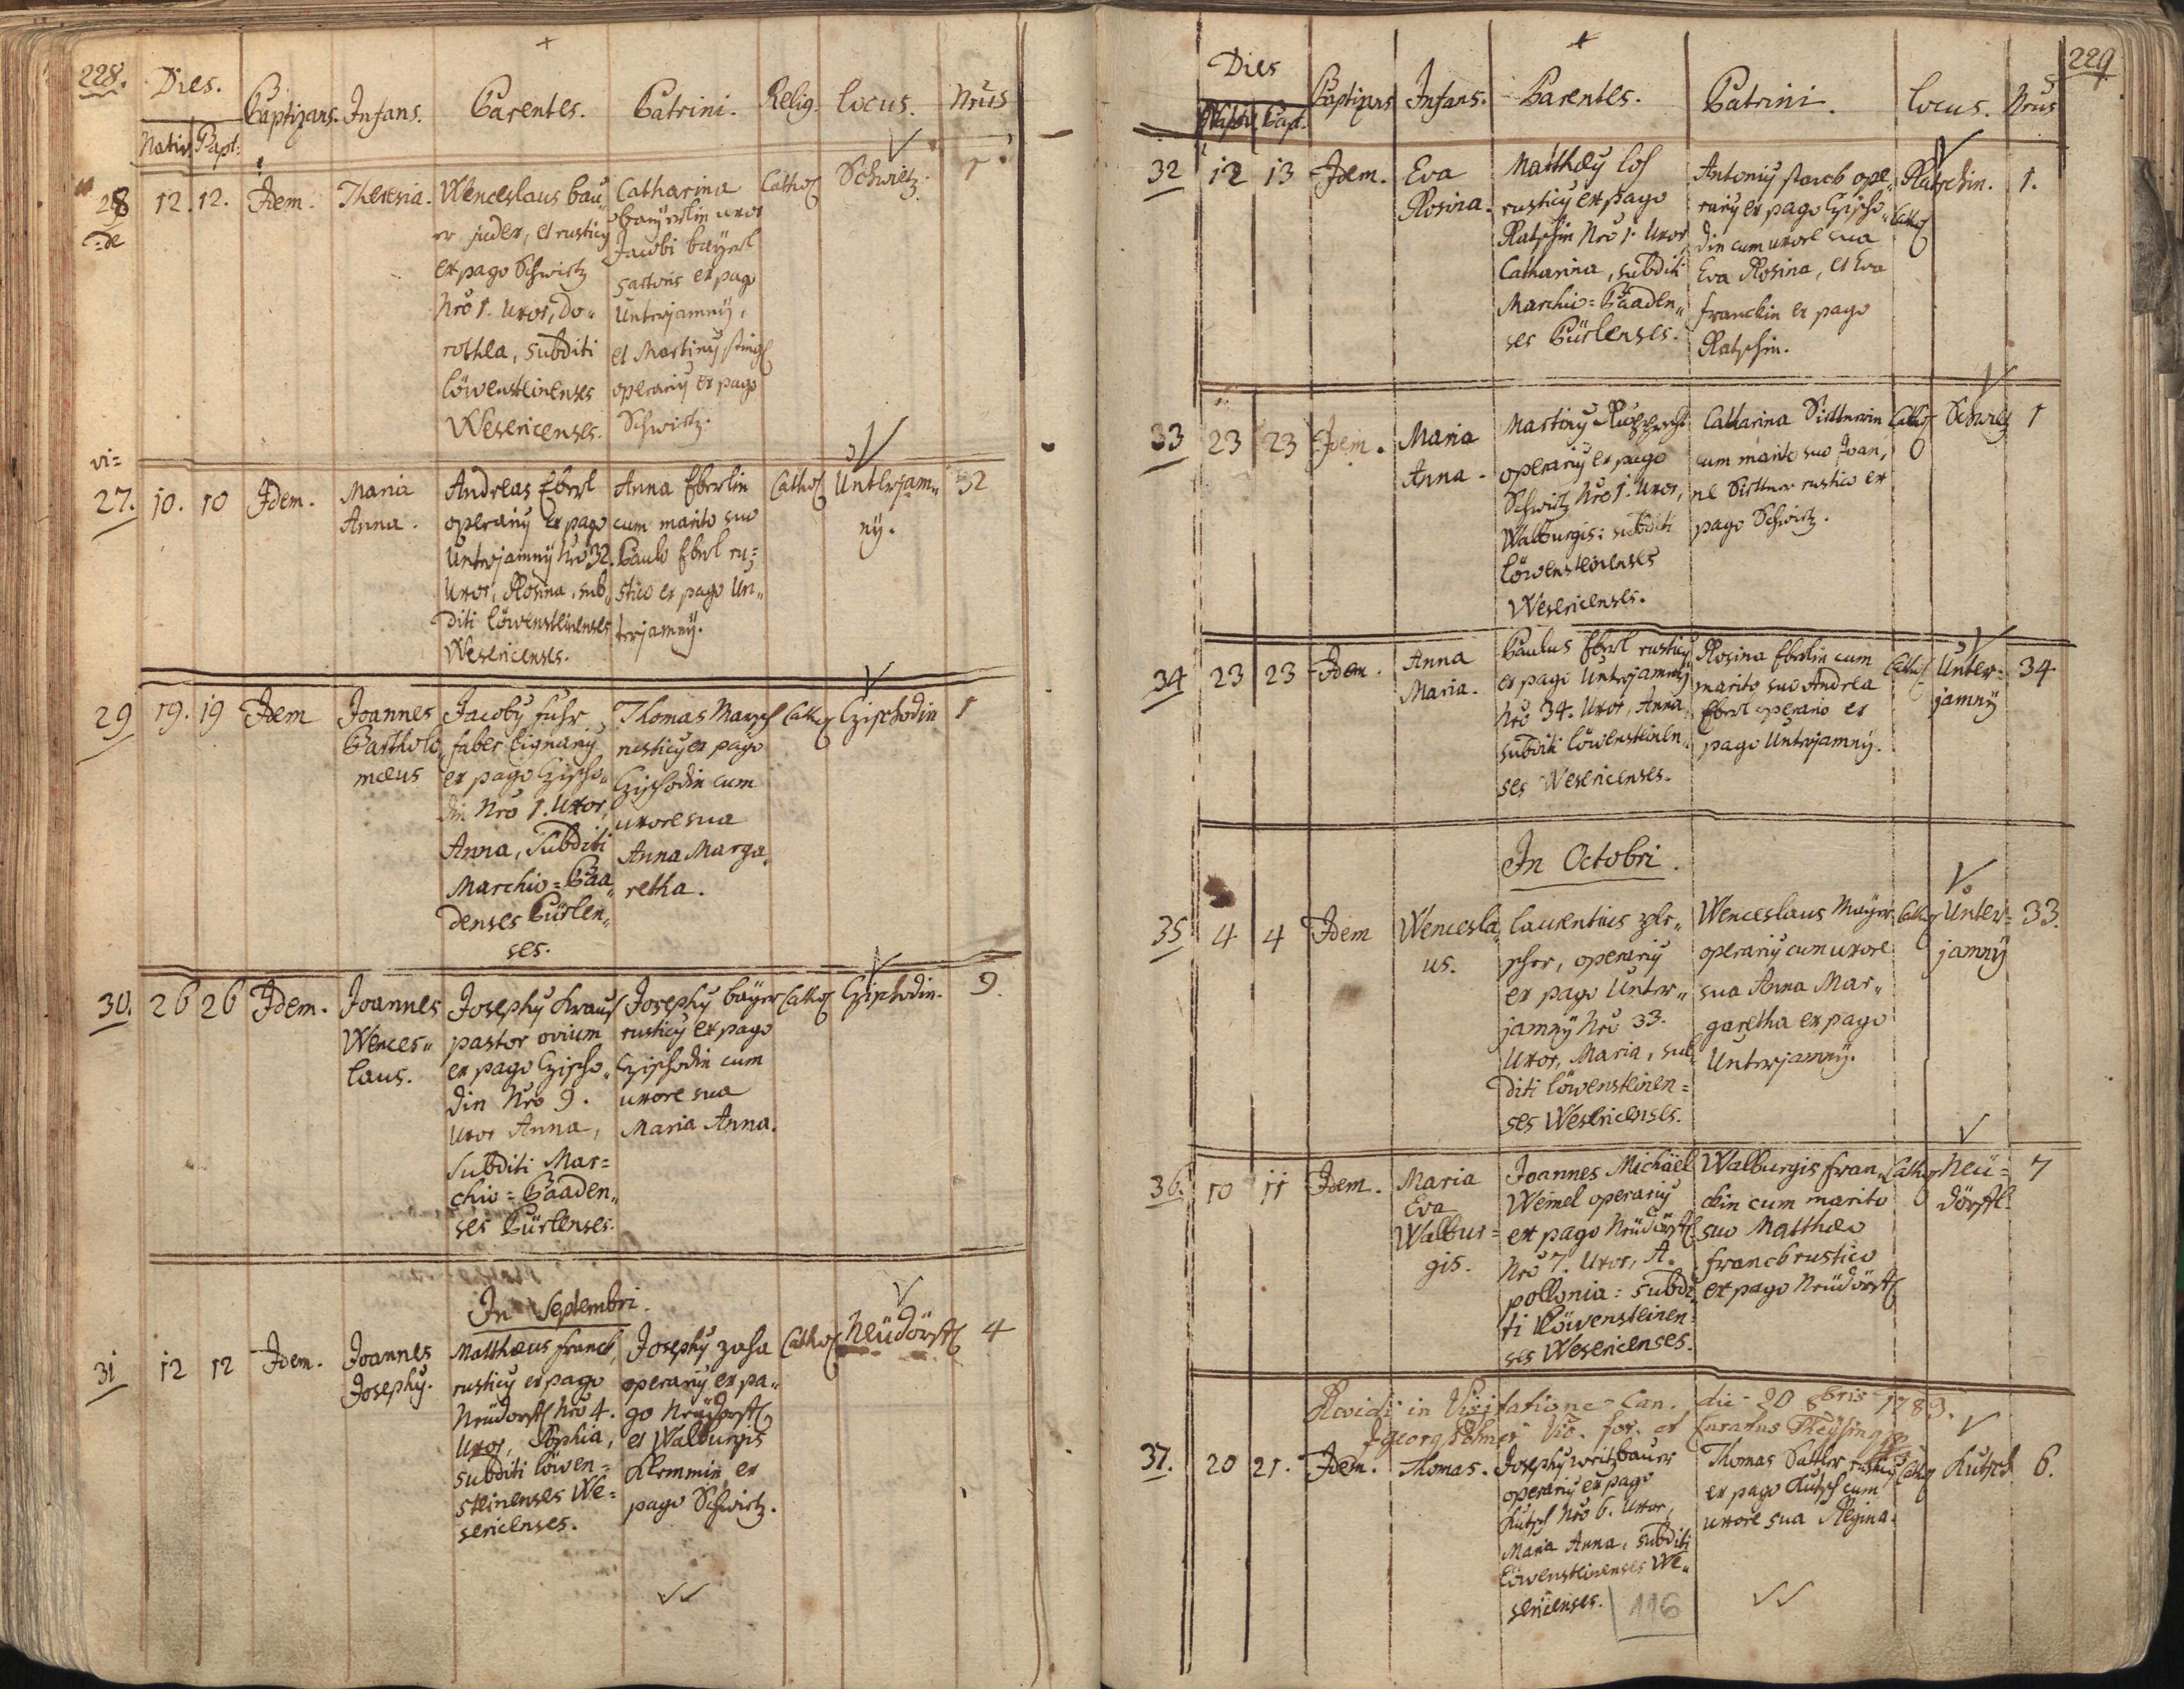 228.
Dies.
Nativ. Bapt:
Baptizans. Infans. Parentes. Patrini. Relig. Locus. Nrus
28
12. 12. Idem. Theresia.
Wenceslaus bau„
er judex, et rusticy
ex pago Schwitz
Nro 1. Uxor, Do„
rothea, subditi
Löwensteinenses
Weserицenses.
Catharina
baÿerlin uxor
Jacobi baÿerl
sartoris ex pago
Unterjamnÿ,
et Martiny
operariy ex pago
Schwitz.
Cathol Schwitz. 1
vi=
de
27. 10. 10 Idem.
Maria
Anna.
Andreas Eberl
operariy ex pago
Unterjamnÿ Nro 32.
Uxor, Rosina, sub„
diti Löwensteinenses
Wesericenses.
Anna Eberlin
cum marito suo
Paulo Eberl ru=
stico ex pago Un„
terjamnÿ.
Cathol Unterjam„
nÿ.
32
29 19. 19 Idem
Joannes
Bartholo„
mæus
Jacoby fuhr
faber lignariy
ex pago Czischo„
din Nro 1. Uxor,
Anna, Subditi
Marchio=Baa„
denses Pürlen„
ses.
Thomas
rusticy ex pago
Czischodin cum
uxore sua
Anna Marga„
retha.
Cathol Czischodin 1
30. 26 26 Idem.
Joannes
Wences„
laus.
Josephy Krauß
pastor ovium
ex pago Czischo„
din Nro 9.
Uxor Anna,
Subditi Mar=
chio=Baaden„
ses Pürlenses.
Josephy baÿer
rusticy ex pago
Czischodin cum
uxore sua
Maria Anna.
Cathol Czischodin. 9.
In Septembri.
31 12 12 Idem.
Joannes
Josephy.
Matthæus franck
rusticy ex pago
Neüdorfl Nro 4.
Uxor, Sophia,
subditi Löwen=
steinenses We=
sericenses.
Josephy
operariy ex pa„
go Neüdorfl
et Walburgis
Klemmin ex
pago Schwitz.
Cathol Neüdörfl 4
229
Dies
Bapt.
Baptizans Infans. Parentes. Patrini. Locus. Nrus
32 12 13 Idem.
Eva
Rosina.
Matthæy
rusticy ex pago
Ratschin Nro 1. Uxor
Catharina, subditi
Marchio=Baaden„
ses Pürlenses.
Antoniy starck ope„
rariy ex pago Czischo„
din cum uxore sua
Eva Rosina, et Eva
franckin ex pago
Ratschin.
Cathol
Ratschin. 1.
33 23 23 Idem.
Maria
Anna.
Martiny
operariy ex pago
Schwitz Nro 1. Uxor,
Walburgis: subditi
Löwensteinenses
Wesericenses.
Catharina Sittnerin
cum marito suo Joan„
ne Sittner rustico ex
pago Schwitz.
Cathol Schwitz 1
34 23 23 Idem.
Anna
Maria.
Paulus Eberl rusticy
ex pago Unterjamnÿ
Nro 34. Uxor, Anna,
subditi Löwensteinen„
ses Wesericenses.
Rosina Eberlin cum
marito suo Andrea
Eberl operario ex
pago Unterjamnÿ.
Cathol Unter=
jamnÿ
34
In Octobri.
35 4 4 Idem
Wencesla„
us.
Laurentius
operariy
ex pago Unter„
jamnÿ Nro 33.
Uxor, Maria, sub
diti Löwensteinen=
ses Wesericenses.
Wenceslaus Maÿer
operariy cum uxore
sua Anna Mar„
garetha ex pago
Unterjamnÿ.
Cathol Unter=
jamnÿ
33.
36. 10 11 Idem.
Maria
Eva
Walbur=
gis.
Joannes Michäel
Weimel operariy
ex pago Neüdörfl
Nro 7. Uxor, A„
pollonia: subdi
ti Löwensteinen=
ses Wesericenses.
Walburgis fran„
ckin cum marito
suo Matthæo
franck rustico
ex pago Neüdörfl
Cathol Neü=
dörfl.
7
Revidi in Visitatione Can. die 20 8bris 1783.
Georg Vic. for. et Curatus Theÿsing
37. 20 21. Idem. Thomas.
Josephy
operariy ex pago
Kutsch Nro 6. Uxor,
Maria Anna, subditi
Löwensteinenses We„
sericenses.
Thomas Sattler rusticy
ex pago Kutsch cum
uxore sua Regina.
Cathol Kutsch 6.
116